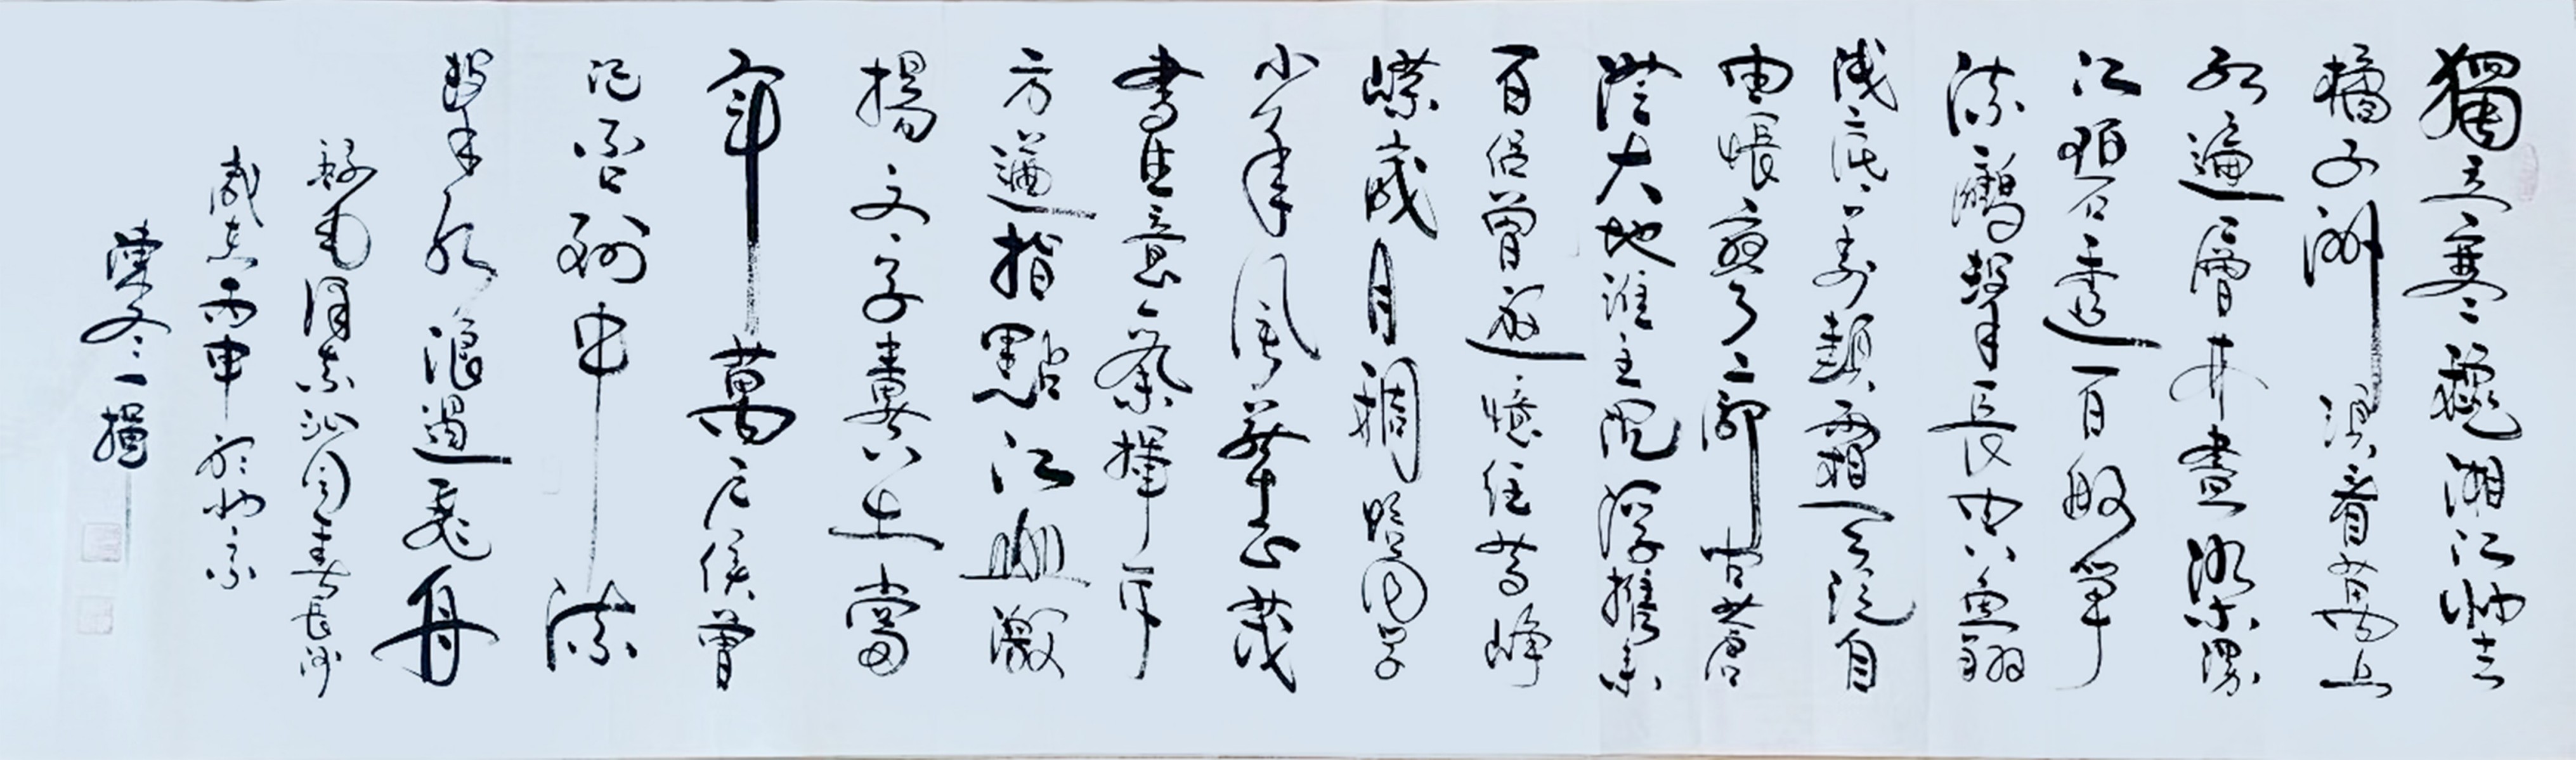 獨立寒穐湘江北去
橘子洲頭看萬山
紅遍層林盡染漫
江碧透百舸爭
流鷹擊長空魚翔
淺底萬類霜天競自
由悵寥廓問蒼
茫大地誰主沉浮攜來
百侶曾遊憶往昔崢
嶸歲月稠恰同學
少年風華正茂
書生意氣揮斥
方遒指點江山激
揚文字糞土當
年萬戶侯曾
記否到中流
擊水浪遏飛舟
錄毛澤東沁園春長沙
歲丙申於北京
冬